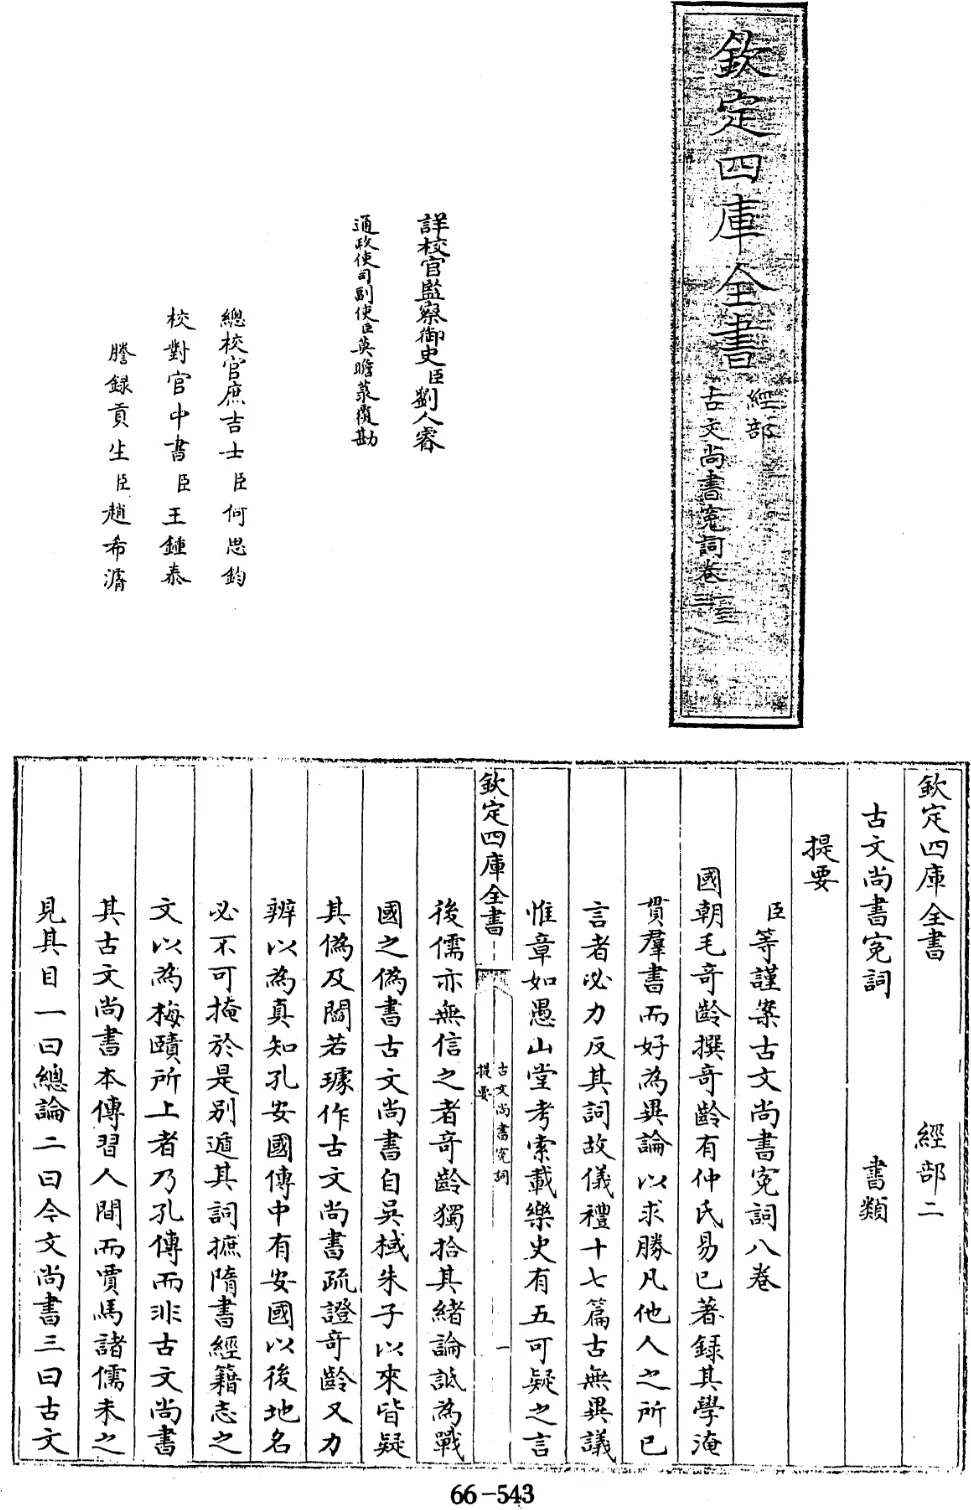 欽定四庫全書
經部
古文尚書寃詞卷一至三
詳校官監察御史臣劉人睿
通政使司副使臣莫瞻菉覆勘
總校官庶吉士臣何思鈞
校對官中書臣王鍾泰
謄録貢生臣趙希濂
欽定四庫全書 經部二
古文尚書寃詞 書類
提要
臣等謹案古文尚書寃詞八卷
國朝毛奇齡撰奇齡有仲氏易已著録其學淹
貫羣書而好為異論以求勝凡他人之所已
言者必力反其詞故儀禮十七篇古無異議
惟章如愚山堂考索載樂史有五可疑之言
欽定四庫全書
古文尚書寃詞
提要
一
後儒亦無信之者奇齡獨拾其緒論詆為戰
國之偽書古文尚書自吳棫朱子以來皆疑
其偽及閻若璩作古文尚書疏證奇齡又力
辨以為真知孔安國傳中有安國以後地名
必不可掩於是别遁其詞摭隋書經籍志之
文以為梅賾所上者乃孔傳而非古文尚書
其古文尚書本傳習人間而賈馬諸儒未之
見其目一曰總論二曰今文尚書三曰古文
66-543